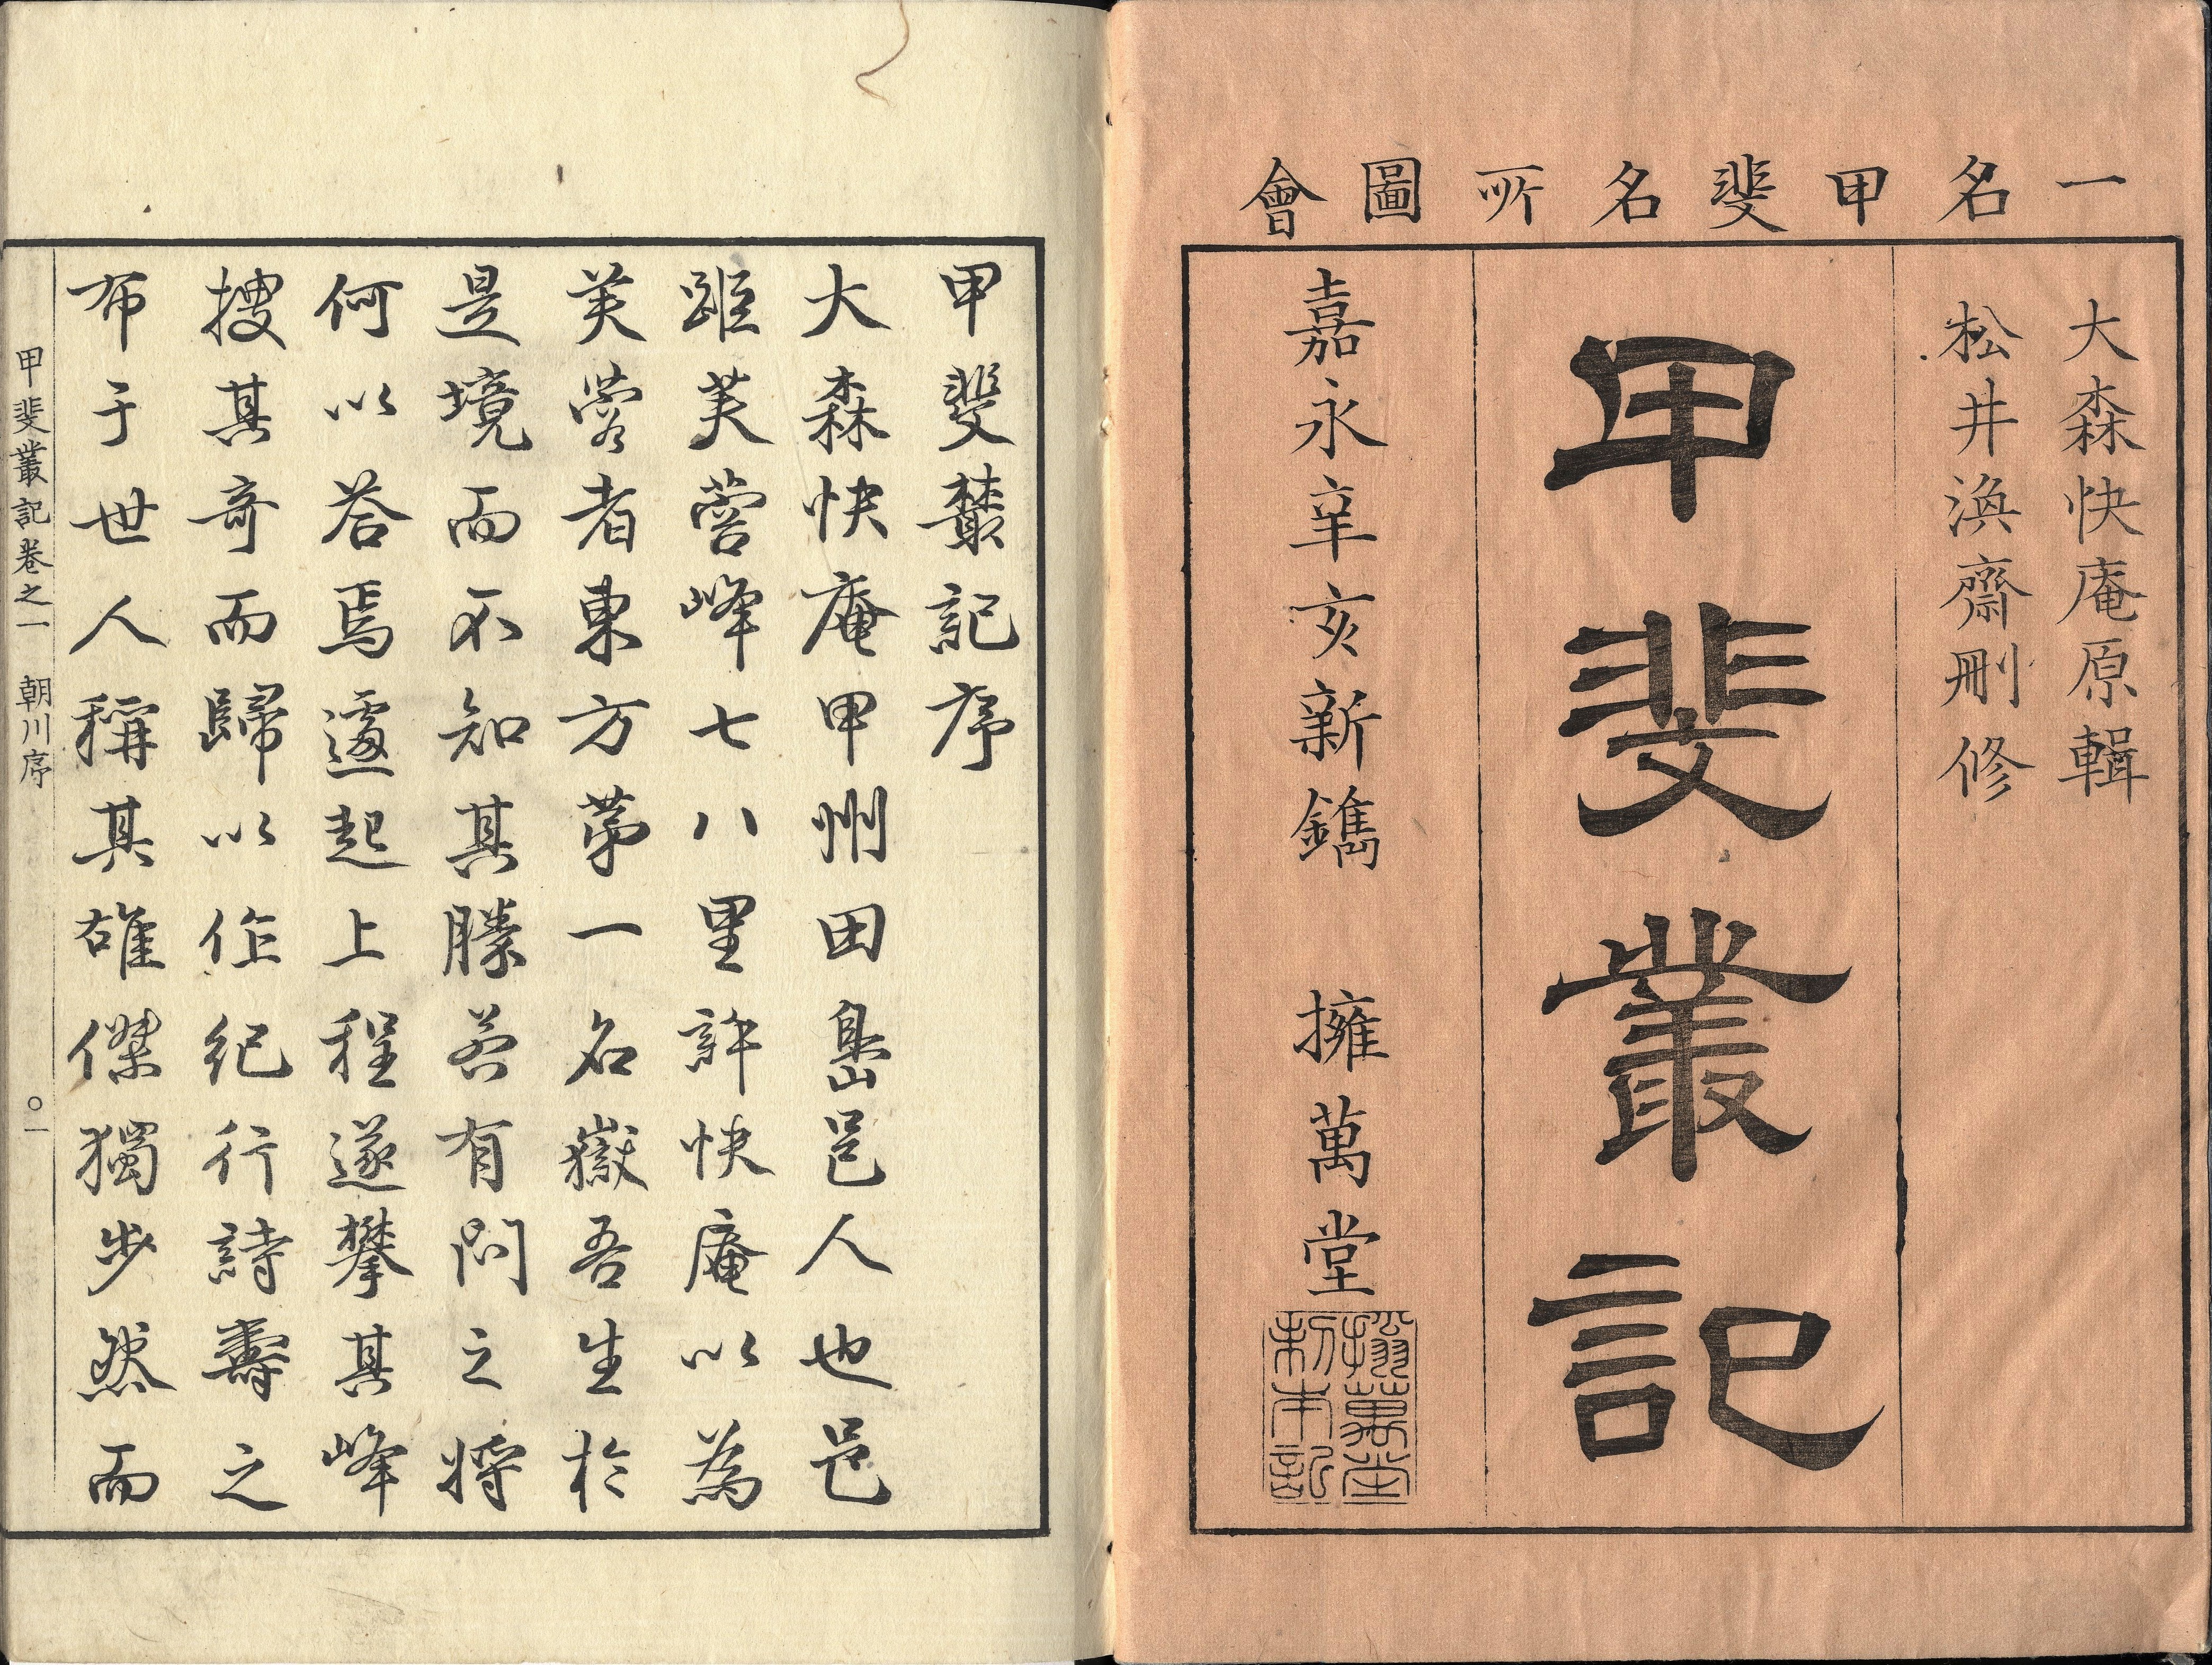 一名甲斐名所圖會
大森快庵原輯
松井渙齋刪修
甲斐叢記
嘉永辛亥新鐫　擁萬堂
擁萬堂
製本記
甲斐叢記序
大森快庵甲州田嶌邑人也邑
距芙蓉峰七八里許快庵以為
芙蓉者東方苐一名嶽吾生於
是境而不知其勝若有問之將
何以答焉遽起上程遂攀其峰
搜其奇而歸以作紀行詩壽之
布于世人稱其雄傑獨步然而
甲斐叢記卷之一　朝川序　〇一